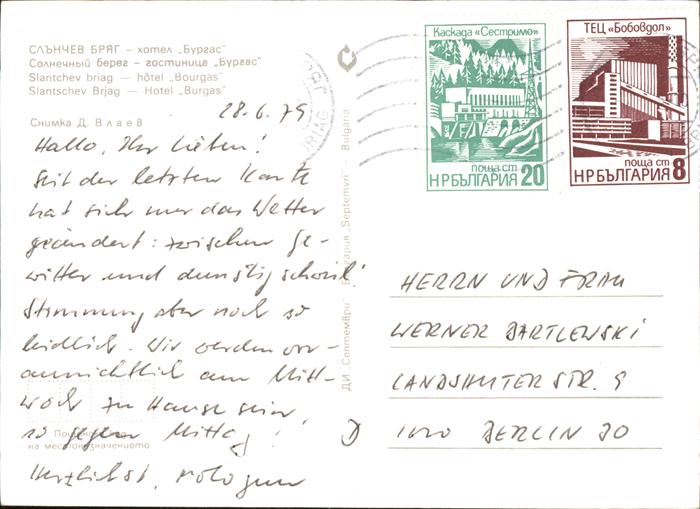 СЛЪНЧЕВ БРЯГ — хотел „Бургас"
Солнечный берег — гостиница „Бургас"
Slantchev briag — hôtel „Bourgas"
Slantschev Brjag — Hotel „Burgas"
28.6.79
Снимка Д. Влаев
Hallo, Ihr Lieben!
Seit der letzten Karte
hat sich nur das Wetter
geändert: zwischen Ge-
witter und dunstig schwül!
Stimmung aber noch so
leidlich. Wir werden vor-
aussichtlich am Mitt-
woch zu Hause sein,
so gegen Mittag!
Herzlichst,
на местоназначението
ДИ „Септември" България „Septemvri" - Bulgaria
Каскада «Сестримо»
поща ст
НРБЪЛГАРИЯ 20
ТЕЦ „Бобовдол"
поща ст
НРБЪЛГАРИЯ 8
HERRN UND FRAU
WERNER BARTLEWSKI
LANDSHUTER STR. 9
D 1000 BERLIN 30